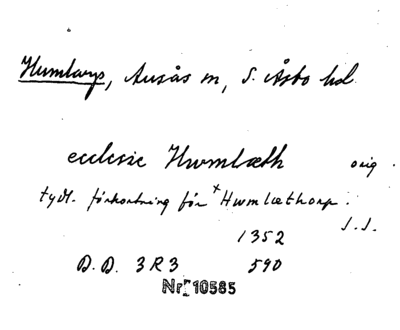 Humlarp, Ausås sn, S. Åsbo hd
ecclesie Hwmlæth orig.
tydl. förkortning för + Hwmlæthorp.
1352 J.S.
D.D. 3R3 590
Nr 10585